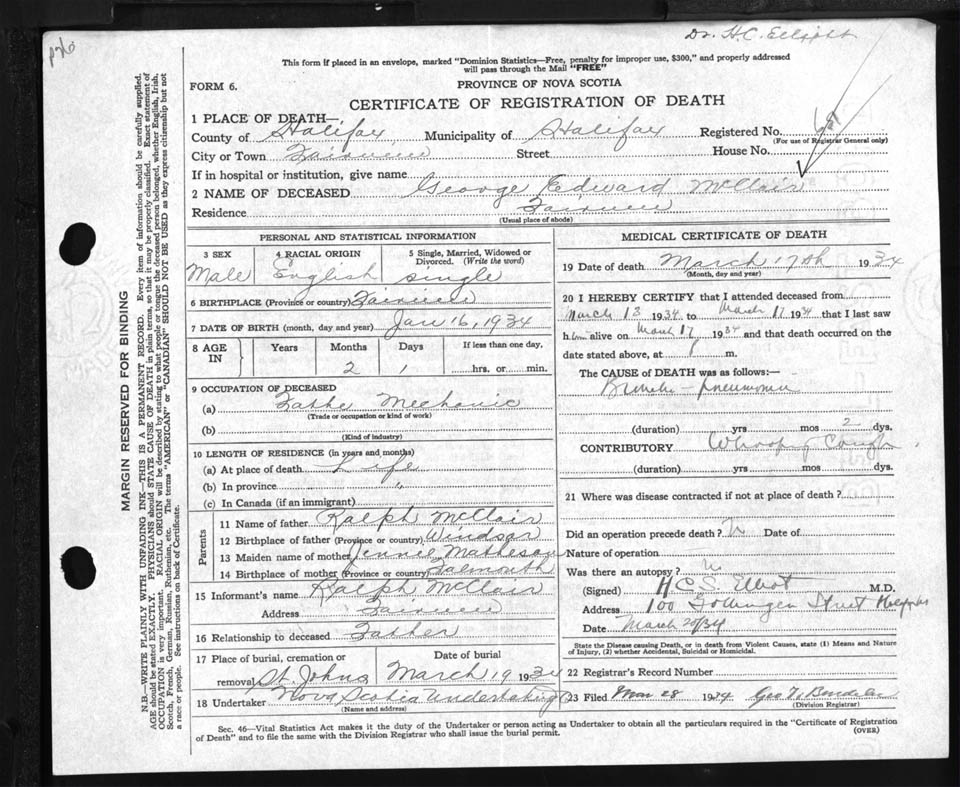 Dr. H.C. Elliott
This form if placed in an envelope, marked "Dominion Statistics—Free, penalty for improper use, $300," and properly addressed
will pass through the Mail "FREE"
FORM 6.
PROVINCE OF NOVA SCOTIA
CERTIFICATE OF REGISTRATION OF DEATH
1 PLACE OF DEATH—
County of Halifax Municipality of Halifax Registered No.
(For use of Registrar General only)
City or Town Fairview Street House No.
If in hospital or institution, give name
2 NAME OF DECEASED George Edward McClair
Residence Fairview
(Usual place of abode)
PERSONAL AND STATISTICAL INFORMATION
3 SEX 4 RACIAL ORIGIN 5 Single, Married, Widowed or Divorced. (Write the word)
Male English single
6 BIRTHPLACE (Province or country) Fairview
7 DATE OF BIRTH (month, day and year) Jan 16, 1934
8 AGE IN Years Months Days If less than one day,
2 1 hrs. or min.
9 OCCUPATION OF DECEASED
(a) Mechanic
(Trade or occupation or kind of work)
(b)
(Kind of industry)
10 LENGTH OF RESIDENCE (in years and months)
(a) At place of death Life
(b) In province "
(c) In Canada (if an immigrant)
Parents
11 Name of father Ralph McClair
12 Birthplace of father (Province or country) Windsor
13 Maiden name of mother Jennie Matheson
14 Birthplace of mother (Province or country) Falmouth
15 Informant's name Ralph McClair
Address Fairview
16 Relationship to deceased Father
17 Place of burial, cremation or removal Date of burial
St. Johns March 19 1934
18 Undertaker Nova Scotia Undertaking
(Name and address)
MEDICAL CERTIFICATE OF DEATH
19 Date of death March 17th 1934
(Month, day and year)
20 I HEREBY CERTIFY that I attended deceased from
March 13 1934 to March 17 1934 that I last saw
him alive on March 17 1934 and that death occurred on the
date stated above, at m.
The CAUSE OF DEATH was as follows:—
Broncho-pneumonia
(duration) yrs mos 2 dys.
CONTRIBUTORY Whooping Cough
(duration) yrs mos dys.
21 Where was disease contracted if not at place of death?
Did an operation precede death? Date of
Nature of operation
Was there an autopsy?
(Signed) H.C.S. Elliot M.D.
Address 100 Gottingen Street Halifax
Date March 20/34
State the Disease causing Death, or in Death from Violent Causes, state (1) Means and Nature
of Injury, (2) whether Accidental, Suicidal or Homicidal.
22 Registrar's Record Number
23 Filed Mar 28 1934
(Division Registrar)
Sec. 46—Vital Statistics Act makes it the duty of the Undertaker or person acting as Undertaker to obtain all the particulars required in the "Certificate of Registration
of Death" and to file the same with the Division Registrar who shall issue the burial permit.
(OVER)
MARGIN RESERVED FOR BINDING
N.B.—WRITE PLAINLY WITH UNFADING INK—THIS IS A PERMANENT RECORD. Every item of information should be carefully supplied.
AGE should be stated EXACTLY. PHYSICIANS should STATE CAUSE OF DEATH in plain terms, so that it may be properly classified. Exact statement of
OCCUPATION is very important. RACIAL ORIGIN will be described by stating to what people or tongue the deceased person belonged, whether English, Irish,
Scotch, French, German, Russian, Ruthenian, etc. The terms "AMERICAN" or "CANADIAN" SHOULD NOT BE USED as they express citizenship but not
a race or people. See instructions on back of Certificate.